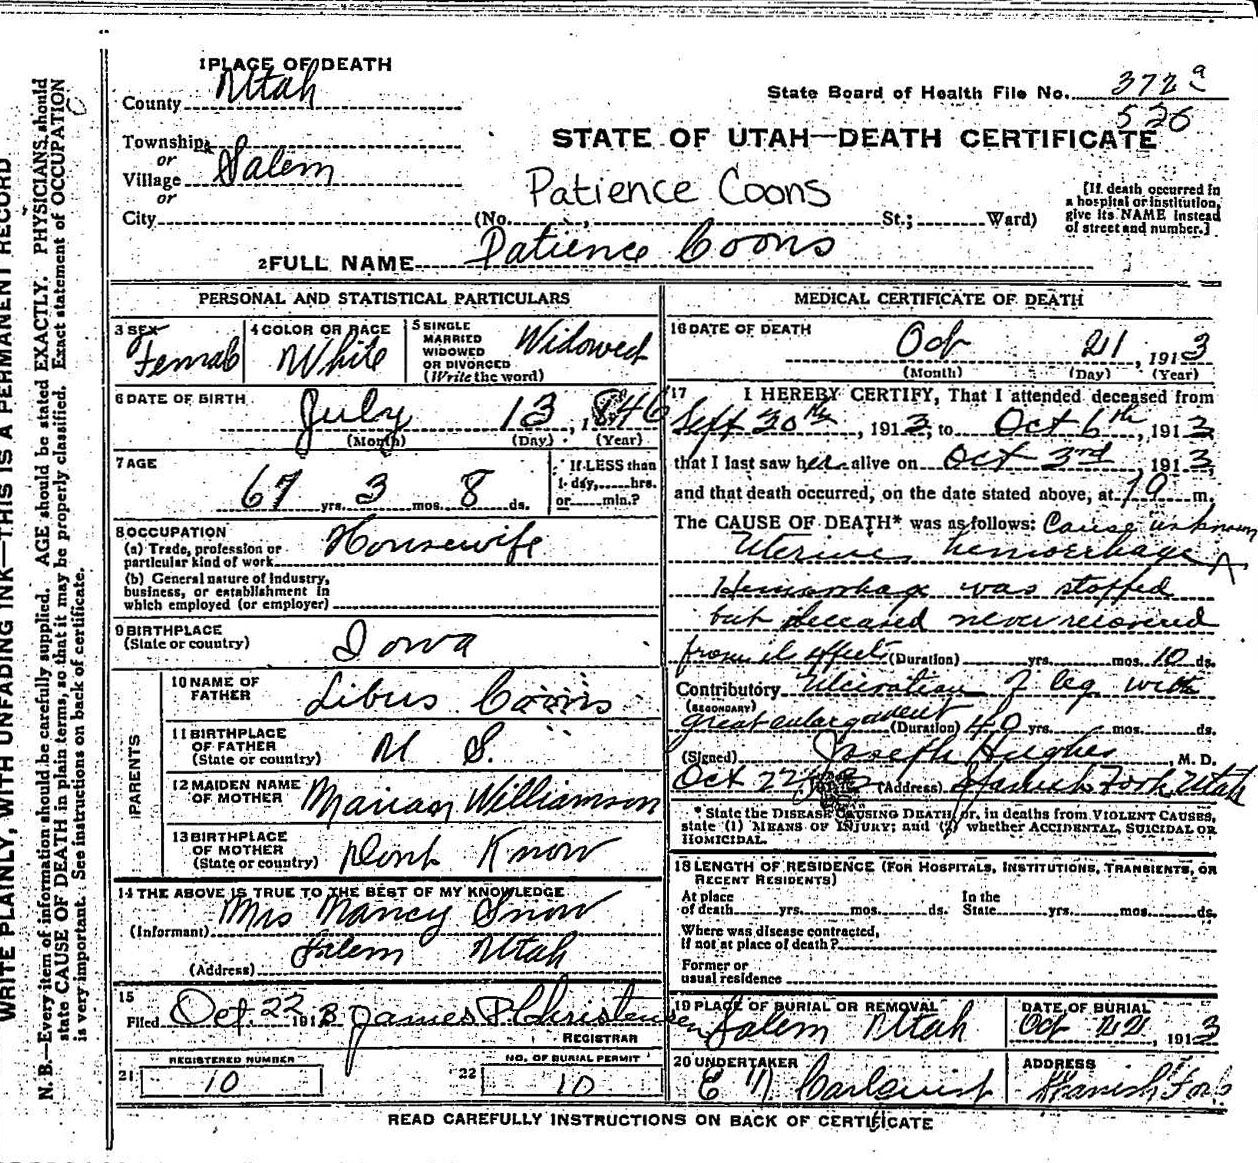 1 PLACE OF DEATH
County Utah
State Board of Health File No. 372 a
526
Township
or
Village Salem
or
City (No. , St.; Ward)
STATE OF UTAH—DEATH CERTIFICATE
Patience Coons
[If death occurred in
a hospital or institution,
give its NAME instead
of street and number.]
2 FULL NAME Patience Coons
PERSONAL AND STATISTICAL PARTICULARS
3 SEX
Female
4 COLOR OR RACE
White
5 SINGLE
MARRIED
WIDOWED
OR DIVORCED
(Write the word)
Widowed
6 DATE OF BIRTH
July 13, 1846
(Month) (Day) (Year)
7 AGE
67 yrs. 3 mos. 8 ds.
If LESS than
1 day, hrs.
or min.?
8 OCCUPATION
(a) Trade, profession or
particular kind of work
Housewife
(b) General nature of industry,
business, or establishment in
which employed (or employer)
9 BIRTHPLACE
(State or country)
Iowa
PARENTS
10 NAME OF
FATHER
Libus Coons
11 BIRTHPLACE
OF FATHER
(State or country)
U S.
12 MAIDEN NAME
OF MOTHER
Marian Williamson
13 BIRTHPLACE
OF MOTHER
(State or country)
Dont Know
14 THE ABOVE IS TRUE TO THE BEST OF MY KNOWLEDGE
(Informant) Mrs Nancy Snow
(Address) Salem Utah
15
Filed Oct. 22 1913 James P Christensen
REGISTRAR
REGISTERED NUMBER
21 10
NO. OF BURIAL PERMIT
22 10
MEDICAL CERTIFICATE OF DEATH
16 DATE OF DEATH
Oct 21, 1913
(Month) (Day) (Year)
17 I HEREBY CERTIFY, That I attended deceased from
Sept 30th, 1913, to Oct 6th, 1913,
that I last saw her alive on Oct 3rd, 1913,
and that death occurred, on the date stated above, at m.
The CAUSE OF DEATH* was as follows: Cause unknown
Uterine hemorrhage
Hemorrhage was stopped
but deceased never recovered
from its effect (Duration) yrs. mos. 10 ds.
Contributory Ulceration of leg with
(SECONDARY)
great enlargement (Duration) 40 yrs. mos. ds.
(Signed) Joseph Hughes, M. D.
Oct 22 (Address) Spanish Fork Utah
* State the DISEASE CAUSING DEATH, or, in deaths from VIOLENT CAUSES,
state (1) MEANS OF INJURY; and (2) whether ACCIDENTAL, SUICIDAL OR
HOMICIDAL.
18 LENGTH OF RESIDENCE (FOR HOSPITALS, INSTITUTIONS, TRANSIENTS, OR
RECENT RESIDENTS)
At place
of death yrs. mos. ds.
In the
State yrs. mos. ds.
Where was disease contracted,
if not at place of death?
Former or
usual residence
19 PLACE OF BURIAL OR REMOVAL
Salem Utah
DATE OF BURIAL
Oct 22, 1913
20 UNDERTAKER
E N Carlquist
ADDRESS
Spanish Fork
READ CAREFULLY INSTRUCTIONS ON BACK OF CERTIFICATE
WRITE PLAINLY, WITH UNFADING INK—THIS IS A PERMANENT RECORD
N. B.—Every item of information should be carefully supplied. AGE should be stated EXACTLY. PHYSICIANS should
state CAUSE OF DEATH in plain terms, so that it may be properly classified. Exact statement of OCCUPATION
is very important. See instructions on back of certificate.